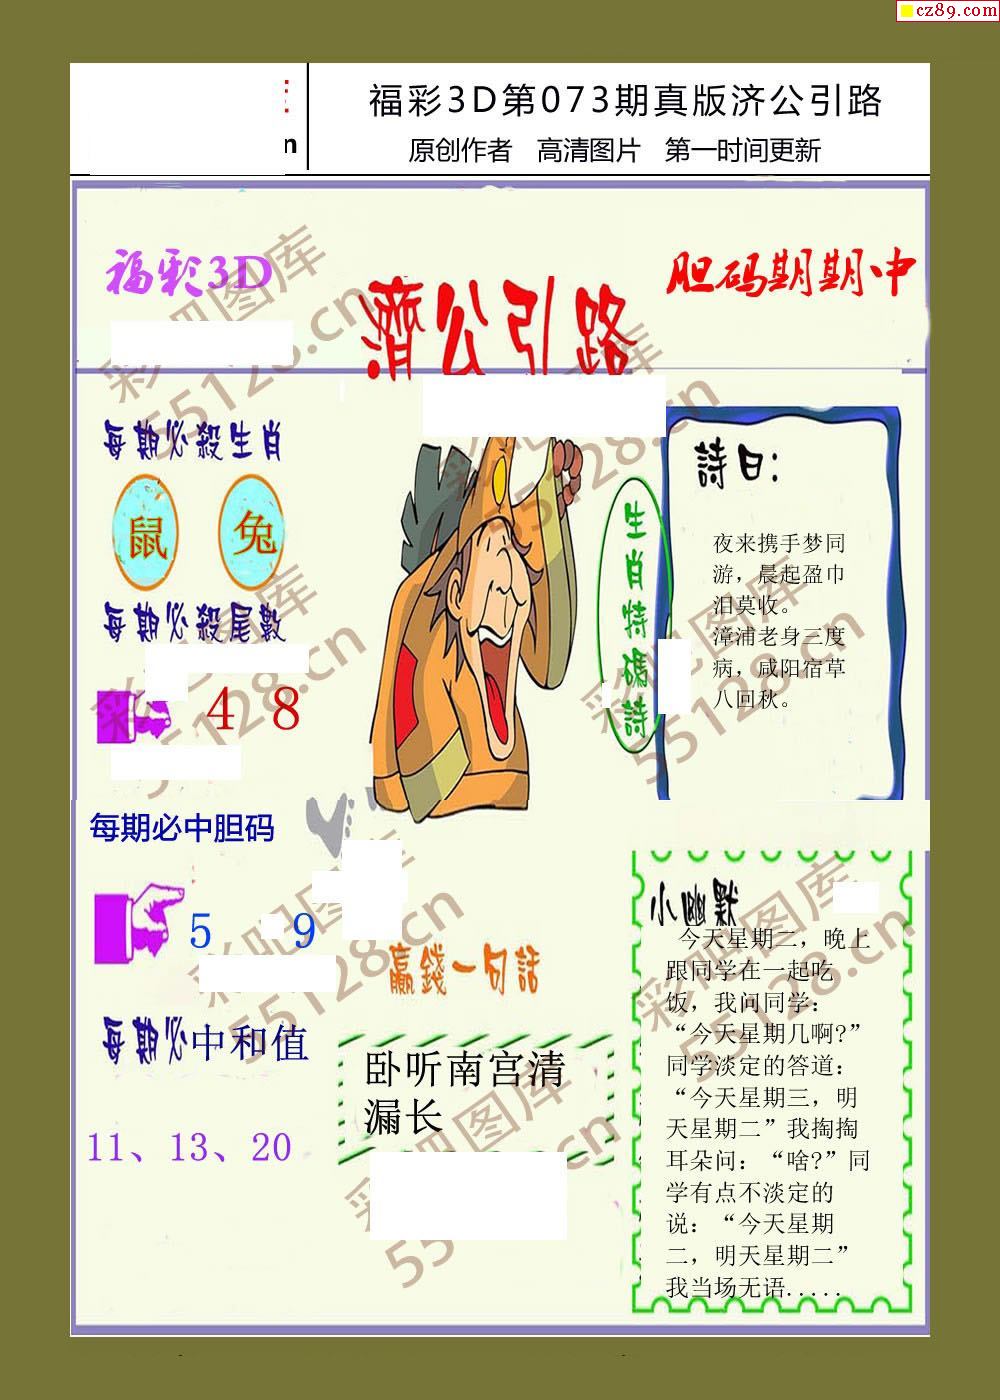 cz89.com
n
福彩3D第073期真版济公引路
原创作者 高清图片 第一时间更新
福彩3D
濟公引路
胆码期期中
每期必殺生肖
鼠 兔
每期必殺尾數
4 8
生肖特碼詩
詩曰：
夜来携手梦同
游，晨起盈巾
泪莫收。
漳浦老身三度
病，咸阳宿草
八回秋。
每期必中胆码
5 9
每期必中和值
11、13、20
贏錢一句話
卧听南宫清
漏长
小幽默
今天星期二，晚上
跟同学在一起吃
饭，我问同学：
“今天星期几啊?”
同学淡定的答道：
“今天星期三，明
天星期二”我掏掏
耳朵问：“啥?”同
学有点不淡定的
说：“今天星期
二，明天星期二”
我当场无语.....
彩吧图库
55128.cn
彩吧图库
55128.cn
彩吧图库
55128.cn
彩吧图库
55128.cn
彩吧图库
55128.cn
彩吧图库
55128.cn
彩吧图库
55128.cn